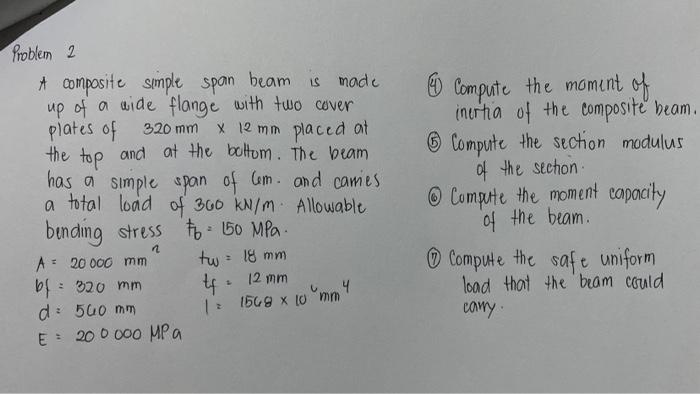 Problem 2
A composite simple span beam is made
up of a wide flange with two cover
plates of 320 mm x 12 mm placed at
the top and at the bottom. The beam
has a simple span of 6m. and carries
a total load of 360 kN/m. Allowable
bending stress fb = 150 MPa.
A = 20 000 mm²
bf = 320 mm
d = 560 mm
E = 200 000 MPa
tw = 18 mm
tf = 12 mm
I = 1568 x 10⁶ mm⁴
④ Compute the moment of
inertia of the composite beam.
⑤ Compute the section modulus
of the section.
⑥ Compute the moment capacity
of the beam.
⑦ Compute the safe uniform
load that the beam could
carry.